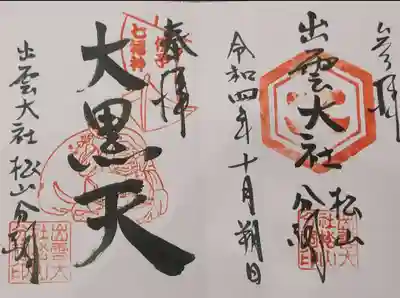 参拝
出雲大社
松山分祠
令和四年十月朔日
奉拝
伊予
七福神
大黒天
出雲大社松山分祠
出雲大
社松山
分祠印